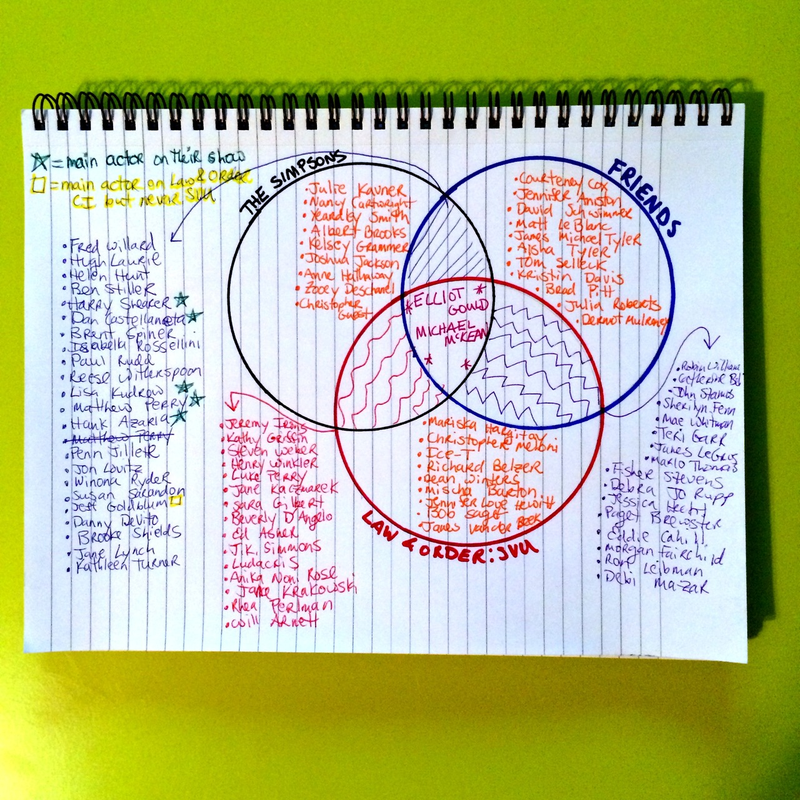 ☆ = main actor on their show
□ = main actor on Law & Order
CI but never SVU
THE SIMPSONS
FRIENDS
LAW & ORDER: SVU
• Fred Willard
• Hugh Laurie
• Helen Hunt
• Ben Stiller
• Harry Shearer ☆
• Dan Castellaneta ☆
• Brent Spiner
• Isabella Rossellini
• Paul Rudd
• Reese Witherspoon
• Lisa Kudrow ☆
• Matthew Perry ☆
• Hank Azaria ☆
• Matthew Perry
• Penn Jillette
• Jon Lovitz
• Winona Ryder
• Susan Sarandon
• Jeff Goldblum □
• Danny DeVito
• Brooke Shields
• Jane Lynch
• Kathleen Turner
• Julie Kavner
• Nancy Cartwright
• Yeardley Smith
• Albert Brooks
• Kelsey Grammer
• Joshua Jackson
• Anne Hathaway
• Zooey Deschanel
• Christopher
Guest
• Courteney Cox
• Jennifer Aniston
• David Schwimmer
• Matt Le Blanc
• James Michael Tyler
• Aisha Tyler
• Tom Selleck
• Kristin Davis
• Brad Pitt
• Julia Roberts
• Dermot Mulroney
* ELLIOT
GOULD *
MICHAEL
McKEAN
* *
• Jeremy Irons
• Kathy Griffin
• Steven Weber
• Henry Winkler
• Luke Perry
• Jane Kaczmarek
• Sara Gilbert
• Beverly D'Angelo
• Ed Asher
• J.K. Simmons
• Ludacris
• Anika Noni Rose
• Jane Krakowski
• Rhea Perlman
• Will Arnett
• Mariska Hargitay
• Christopher Meloni
• Ice-T
• Richard Belzer
• Dean Winters
• Mischa Barton
• Jennifer Love Hewitt
• Bob Saget
• James Van der Beek
• Robin William
• Catherine Bell
• John Stamos
• Sherilyn Fenn
• Mae Whitman
• Teri Garr
• James LeGros
• Marlo Thomas
• Fisher Stevens
• Debra Jo Rupp
• Jessica Hecht
• Paget Brewster
• Eddie Cahill
• Morgan Fairchild
• Ron Leibman
• Debi Mazar